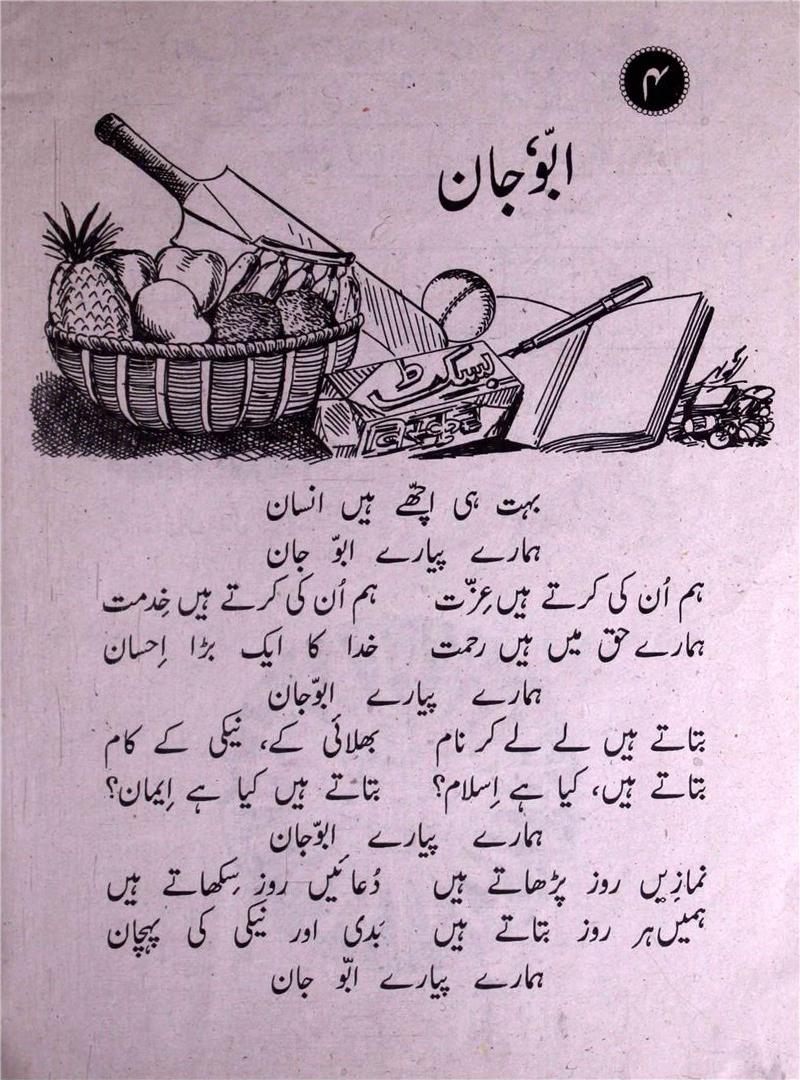 ۴
ابّو جان
بسکٹ
بہت ہی اچھّے ہیں انسان
ہمارے پیارے ابوّ جان
ہم اُن کی کرتے ہیں عِزّت ہم اُن کی کرتے ہیں خِدمت
ہمارے حق میں ہیں رحمت خدا کا ایک بڑا اِحسان
ہمارے پیارے ابوّجان
بتاتے ہیں لے لے کر نام بھلائی کے، نیکی کے کام
بتاتے ہیں، کیا ہے اِسلام؟ بتاتے ہیں کیا ہے اِیمان؟
ہمارے پیارے ابوّجان
نمازیں روز پڑھاتے ہیں دُعائیں روز سِکھاتے ہیں
ہمیں ہر روز بتاتے ہیں بَدی اور نیکی کی پہچان
ہمارے پیارے ابّو جان